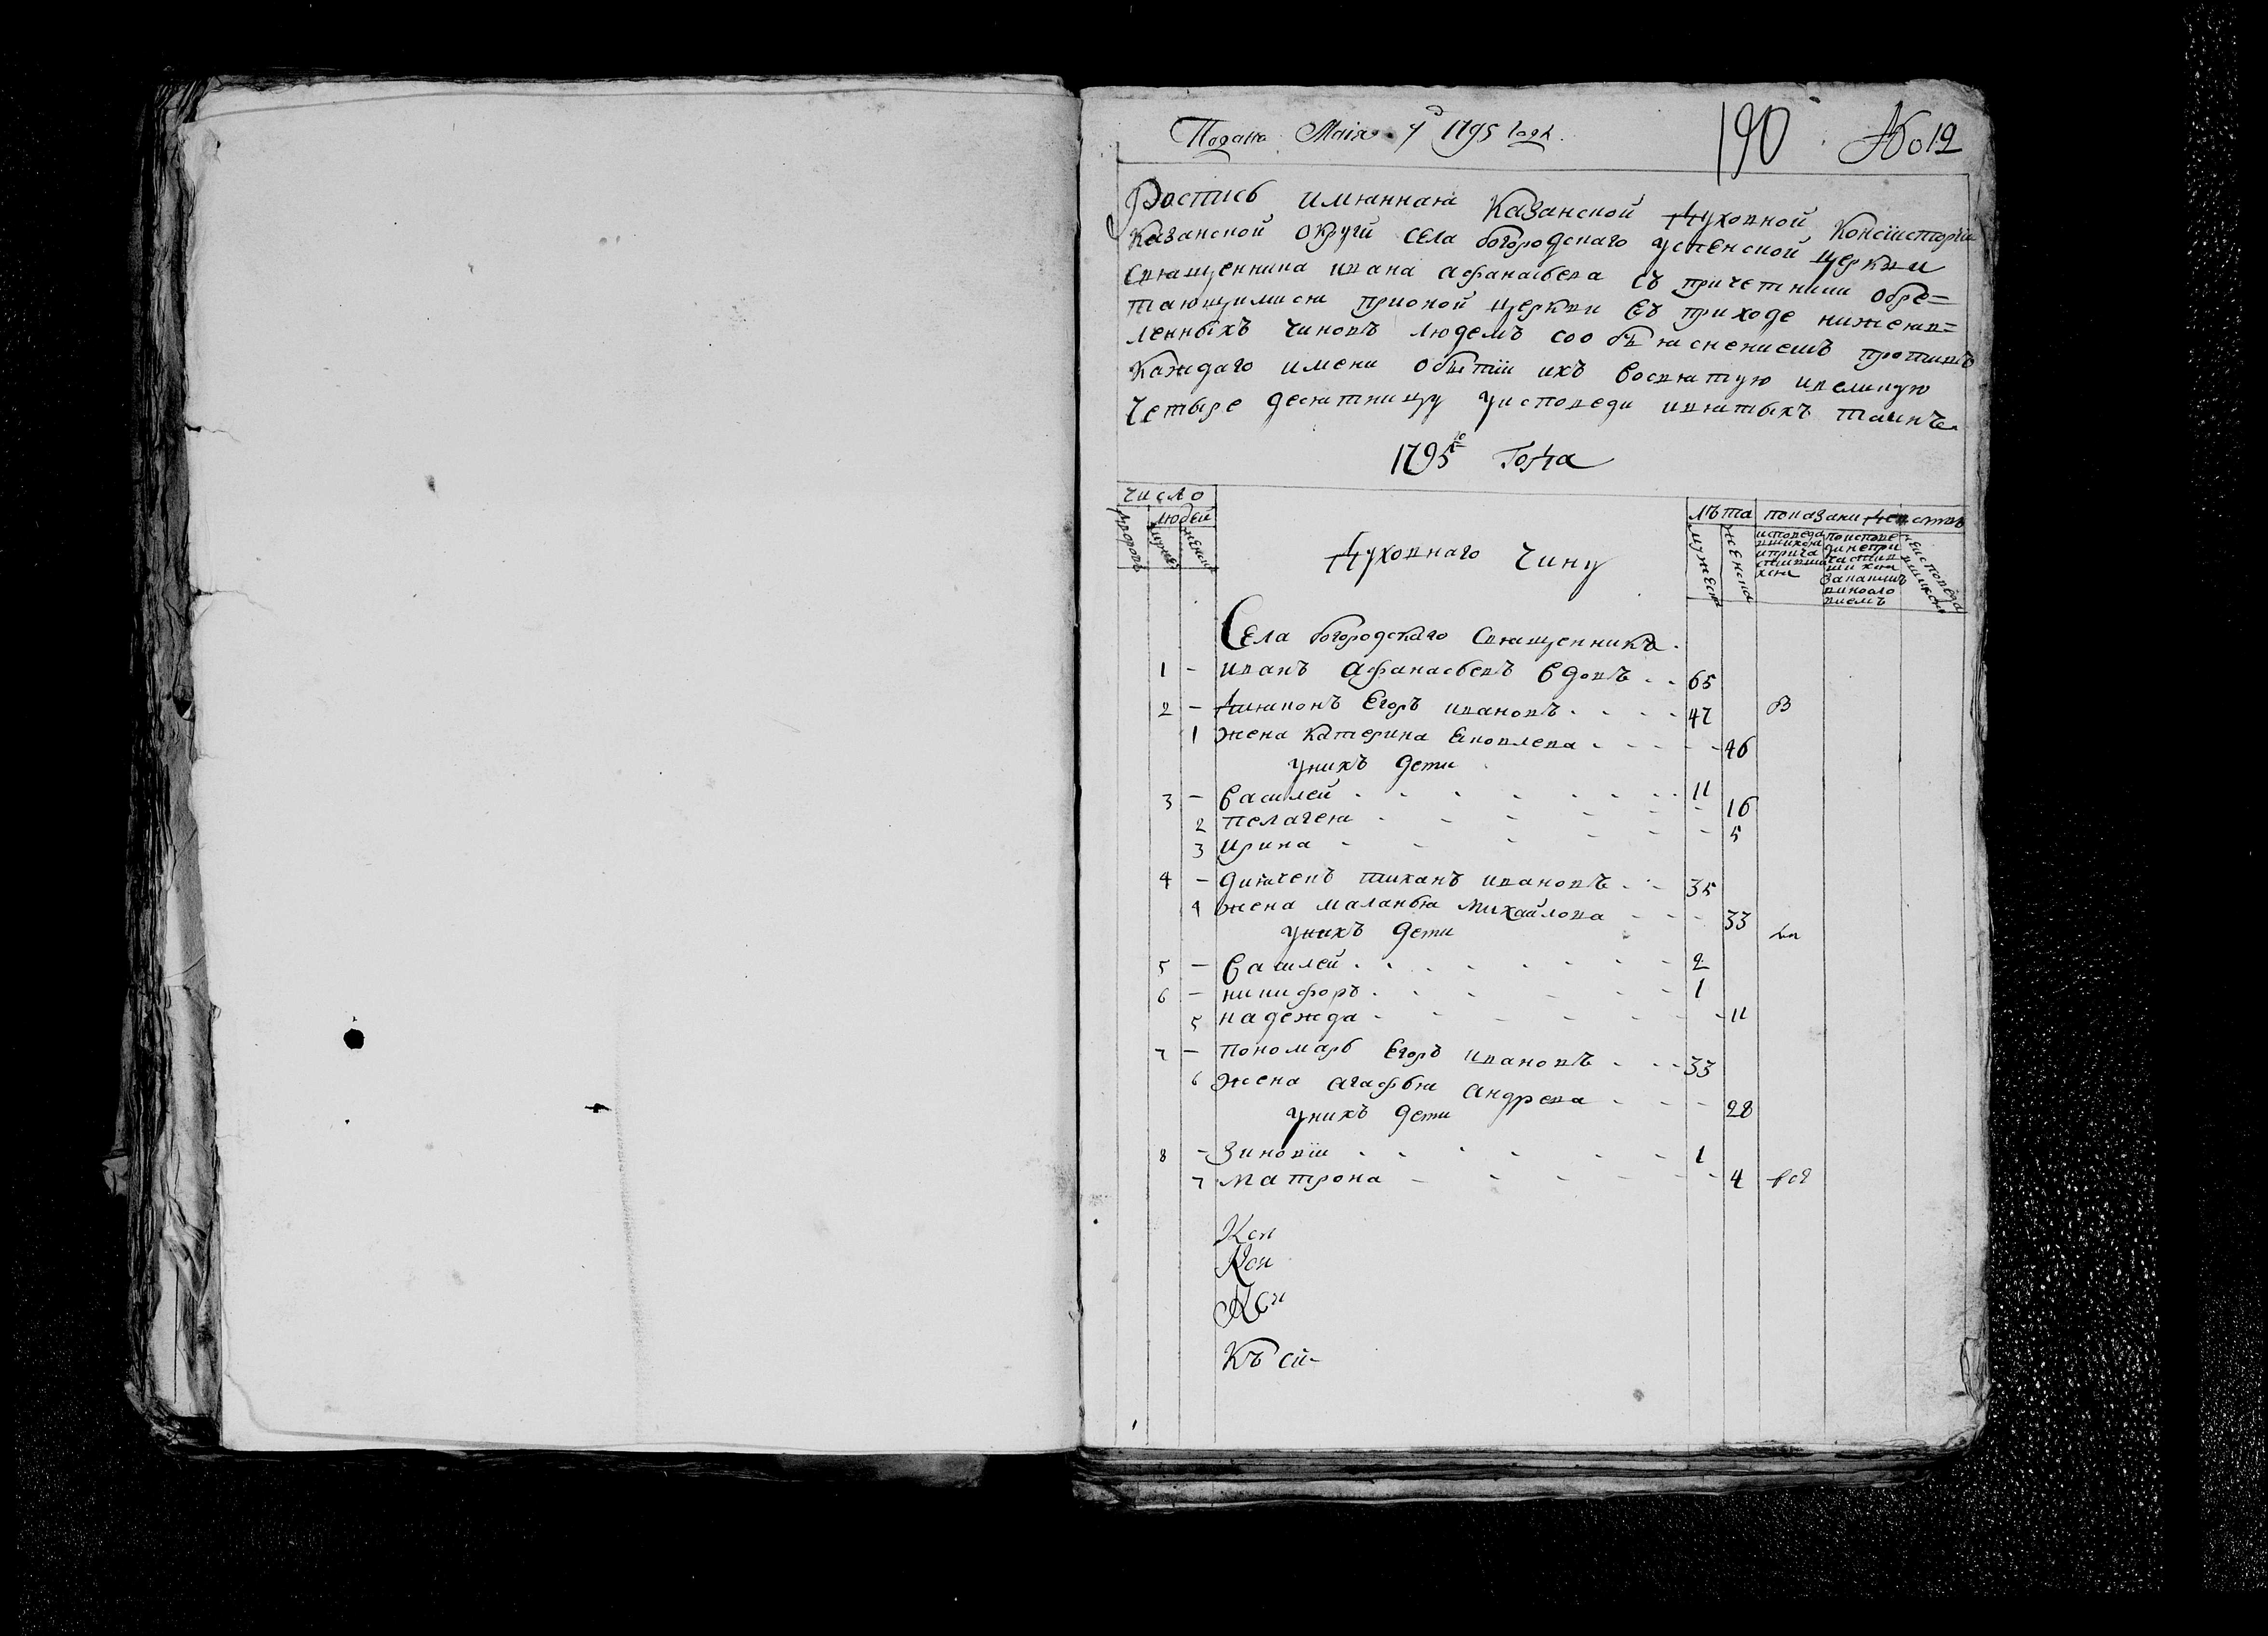 Подана Маія 7д 1795 года.
190 № 12
Роспись имянная Казанской Духовной Консисторіи
Казанской округи села богородскаго успенской церкви
священника ивана афанасьева съ причетники обре=
тающимися прионой церкви въ приходе нижеяв=
ленныхъ чиновъ людемъ сообъяснениемъ противъ
каждаго имени обытіи ихъ восвятую ивеликую
четыредесятницу уисповеди исвятыхъ таинъ
1795го Года
число
людей
дворовъ
мужеск
женска
Духовнаго Чину
лѣта
мужеск
женска
показани действъ
исповеда
вшихся
иприча
стивши
хся
поиспове
динепри
частив
шихся
заканимъ
виносло
виемъ
неисповеда
вшихся
Села богородскаго Священникъ.
1 - иванъ Афанасьевъ вдовъ 65
2 - Дияконъ Егоръ ивановъ 47 В
1 жена катерина Яковлева 46
унихъ дети
3 - василей 11
2 пелагея 16
3 ирина 5
4 - дьячекъ тиханъ ивановъ 35
4 жена маланья михайлова 33
унихъ дети
5 - василей 2
6 - никифоръ 1
5 надежда 11
7 - пономарь Егоръ ивановъ 33
6 жена агафья андрева 28
унихъ дети
8 - Зиновіи 1
7 матрона 4 всѣ
Ксп
Ксп
Ксп
Къ сй-